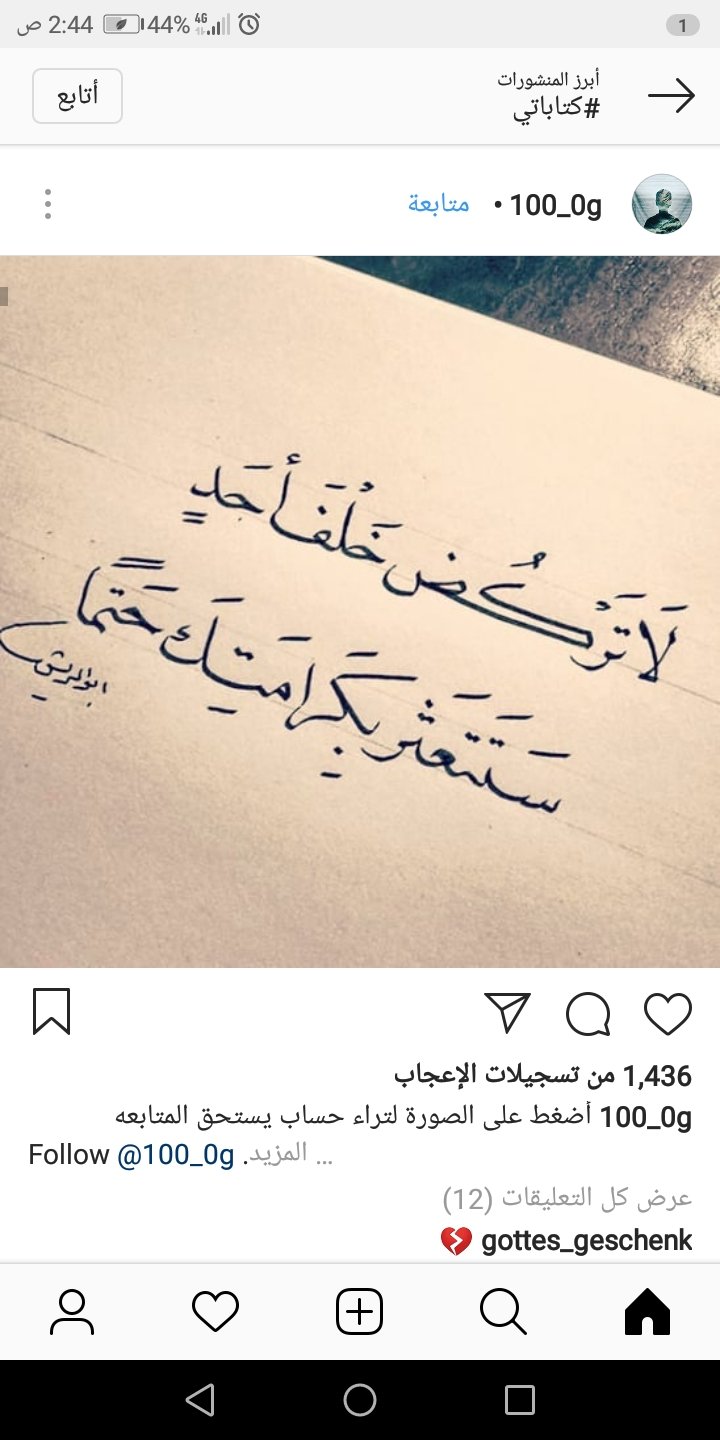 2:44 ص 44% 4G 1
أبرز المنشورات
#كتاباتي
أتابع
100_0g • متابعة
لَا تَرْكُض خَلْفَ أَحَدٍ
سَتَتَعَثَر بِكَرَامَتِك حَتمَاً
ابو الدريش
1,436 من تسجيلات الإعجاب
100_0g أضغط على الصورة لتراء حساب يستحق المتابعه
Follow @100_0g .المزيد ...
عرض كل التعليقات (12)
gottes_geschenk 💔